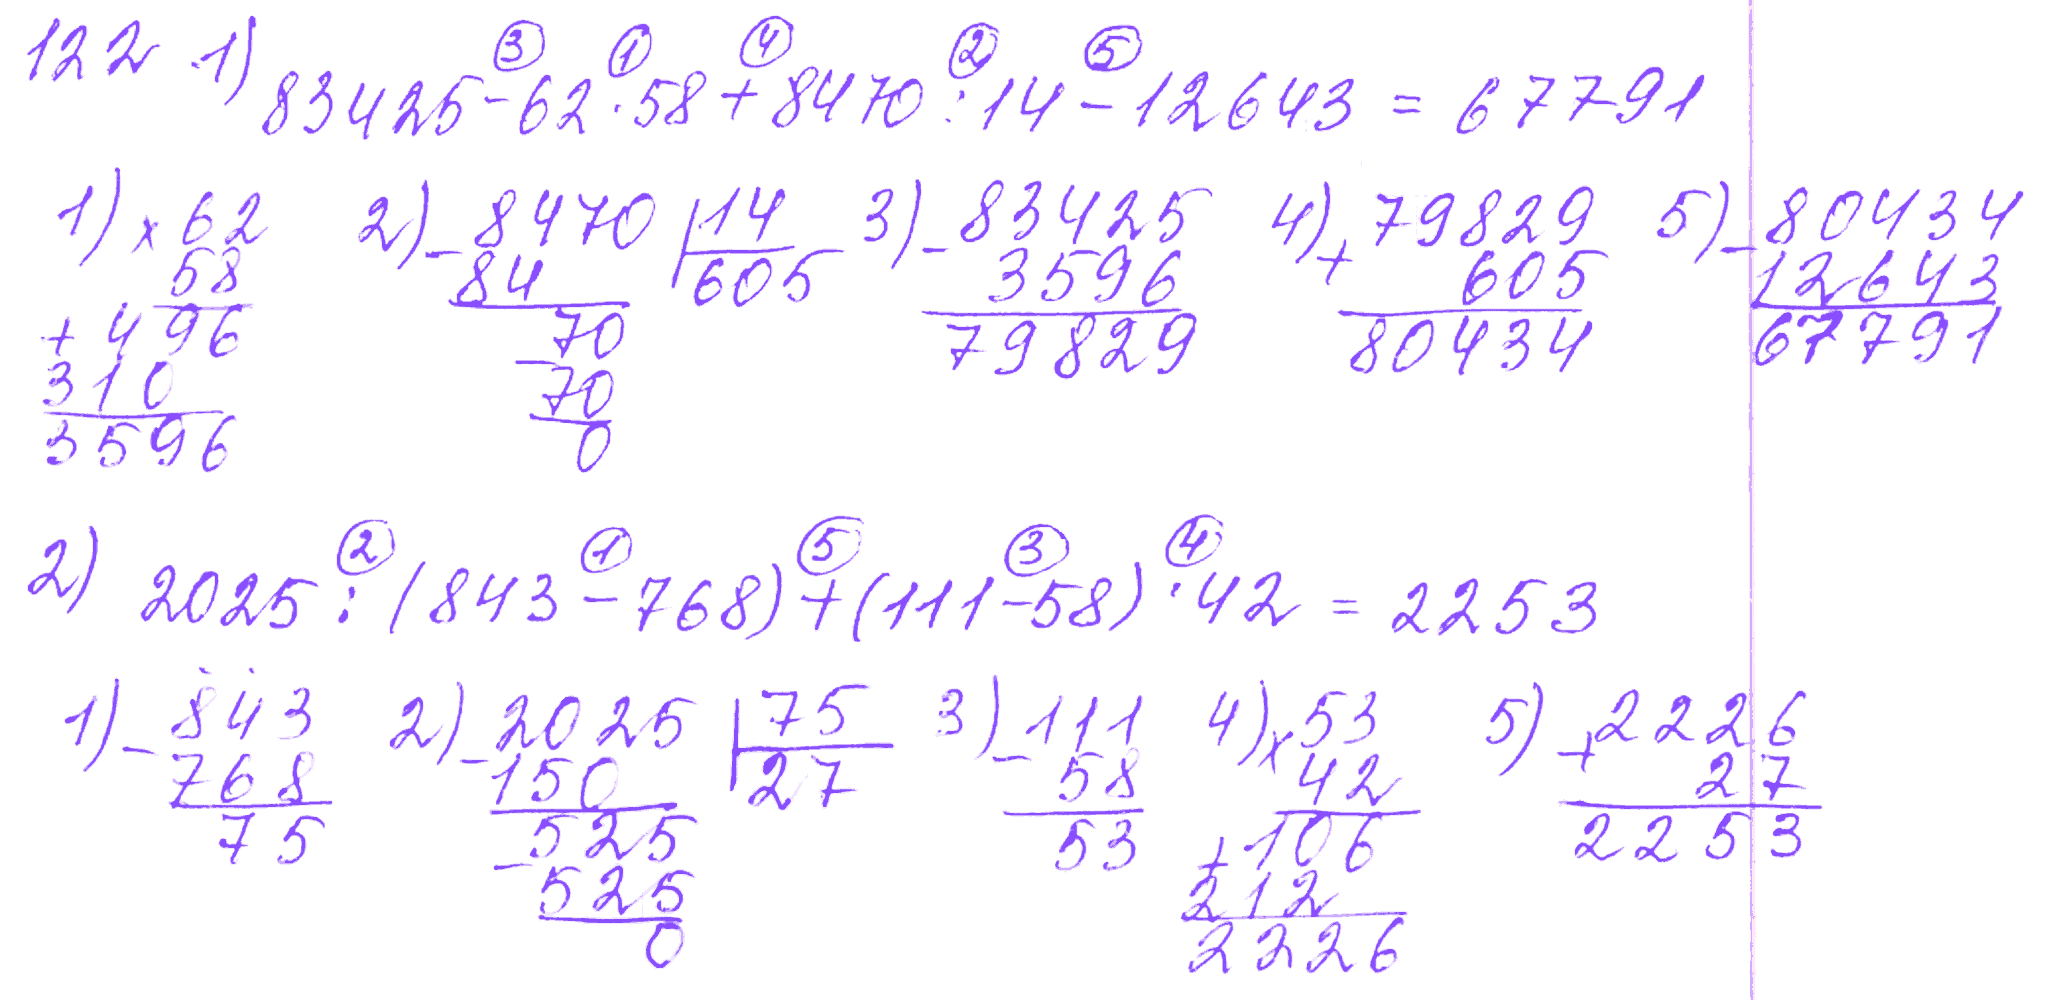 122 1)
③ ① ④ ② ⑤
83425-62·58+8470:14-12643=67791
1) 2) 3) 4) 5)
× 62 - 8470 14 - 83425 + 79829 - 80434
58 84 605 3596 605 12643
+ 496 70 79829 80434 67791
310 - 70
3596 0
2)
② ① ⑤ ③ ④
2025:(843-768)+(111-58)·42=2253
1) - 843 2) - 2025 75 3) - 111 4) × 53 5) + 2226
768 150 27 58 42 27
75 525 53 + 106 2253
- 525 212
0 2226